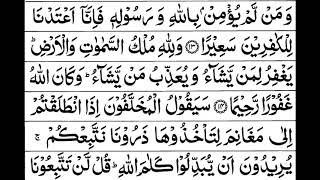 وَ مَنْ لَّمْ یُؤْمِنْۢ بِاللّٰهِ وَ رَسُوْلِهٖ فَاِنَّاۤ اَعْتَدْنَا
لِلْكٰفِرِیْنَ سَعِیْرًا ﴿۱۳﴾ وَلِلّٰهِ مُلْكُ السَّمٰوٰتِ وَالْاَرْضِ ؕ
یَغْفِرُ لِمَنْ یَّشَآءُ وَ یُعَذِّبُ مَنْ یَّشَآءُ ؕ وَكَانَ اللّٰهُ
غَفُوْرًا رَّحِیْمًا ﴿۱۴﴾ سَیَقُوْلُ الْمُخَلَّفُوْنَ اِذَا انْطَلَقْتُمْ
اِلٰى مَغَانِمَ لِتَاْخُذُوْهَا ذَرُوْنَا نَتَّبِعْكُمْ ۚ
یُرِیْدُوْنَ اَنْ یُّبَدِّلُوْا كَلٰمَ اللّٰهِ ؕ قُلْ لَّنْ تَتَّبِعُوْنَا